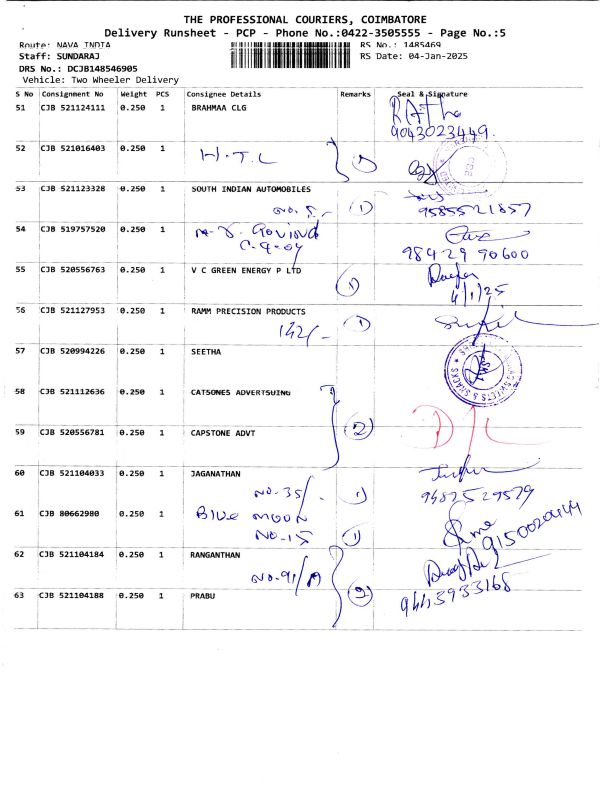 THE PROFESSIONAL COURIERS, COIMBATORE
Delivery Runsheet - PCP - Phone No.:0422-3505555 - Page No.:5
Route: NAVA INDIA RS No.: 1485469
Staff: SUNDARAJ RS Date: 04-Jan-2025
DRS No.: DCJB148546905
Vehicle: Two Wheeler Delivery
S No Consignment No Weight PCS Consignee Details Remarks Seal & Signature
51 CJB 521124111 0.250 1 BRAHMAA CLG
9043023449.
52 CJB 521016403 0.250 1
H.T.L
53 CJB 521123328 0.250 1 SOUTH INDIAN AUTOMOBILES
NO. 5 (1) 9585521857
54 CJB 519757520 0.250 1
98429 90600
55 CJB 520556763 0.250 1 V C GREEN ENERGY P LTD
(1) 4/1/25
56 CJB 521127953 0.250 1 RAMM PRECISION PRODUCTS
142/- (1)
57 CJB 520994226 0.250 1 SEETHA
58 CJB 521112636 0.250 1 CATSONES ADVERTSUING
59 CJB 520556781 0.250 1 CAPSTONE ADVT (2)
60 CJB 521104033 0.250 1 JAGANATHAN
NO. 35/. (1) 9482529579
61 CJB 80662980 0.250 1 BLUE MOON
NO-15 (1) 9150020444
62 CJB 521104184 0.250 1 RANGANTHAN
NO-91/A
63 CJB 521104188 0.250 1 PRABU (2) 9443933168